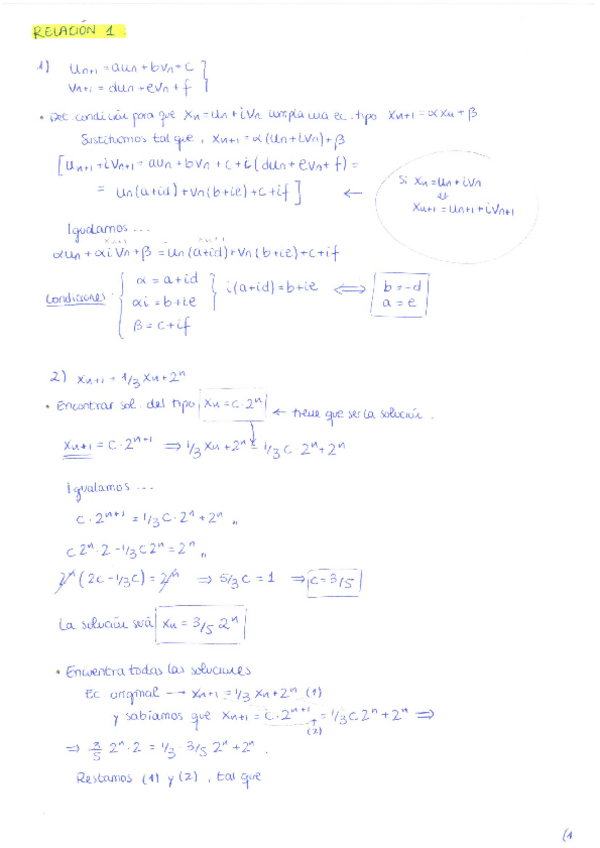 RELACIÓN 1.
1) Un+1 = aun + bvn + c
Vn+1 = dun + evn + f
• Det. condición para que Xn = Un + iVn cumpla una ec. tipo Xn+1 = αXn + β
Sustituimos tal que, Xn+1 = α(Un + iVn) + β
[Un+1 + iVn+1 = aun + bvn + c + i(dun + evn + f) =
= Un(a+id) + Vn(b+ie) + c + if] ←
Si Xn = Un + iVn
⇓
Xn+1 = Un+1 + iVn+1
Igualamos ...
αUn + αiVn + β = Un(a+id) + Vn(b+ie) + c + if
Condiciones: { α = a+id
αi = b+ie } i(a+id) = b+ie ⇔ b = -d
a = e
β = c+if
2) Xn+1 = 1/3 Xn + 2ⁿ
• Encontrar sol. del tipo Xn = c·2ⁿ ← tiene que ser la solución.
Xn+1 = c·2ⁿ⁺¹ ⇒ 1/3 Xn + 2ⁿ = 1/3 c·2ⁿ + 2ⁿ
Igualamos ...
c·2ⁿ⁺¹ = 1/3 c·2ⁿ + 2ⁿ „
c 2ⁿ·2 - 1/3 c 2ⁿ = 2ⁿ „
2ⁿ(2c - 1/3c) = 2ⁿ ⇒ 5/3 c = 1 ⇒ c = 3/5
La solución será Xn = 3/5 2ⁿ
• Encuentra todas las soluciones
Ec. original → Xn+1 = 1/3 Xn + 2ⁿ (1)
y sabíamos que Xn+1 = c·2ⁿ⁺¹ = 1/3 c 2ⁿ + 2ⁿ ⇒
(2)
⇒ 3/5 2ⁿ·2 = 1/3 · 3/5 2ⁿ + 2ⁿ.
Restamos (1) y (2), tal que
(1